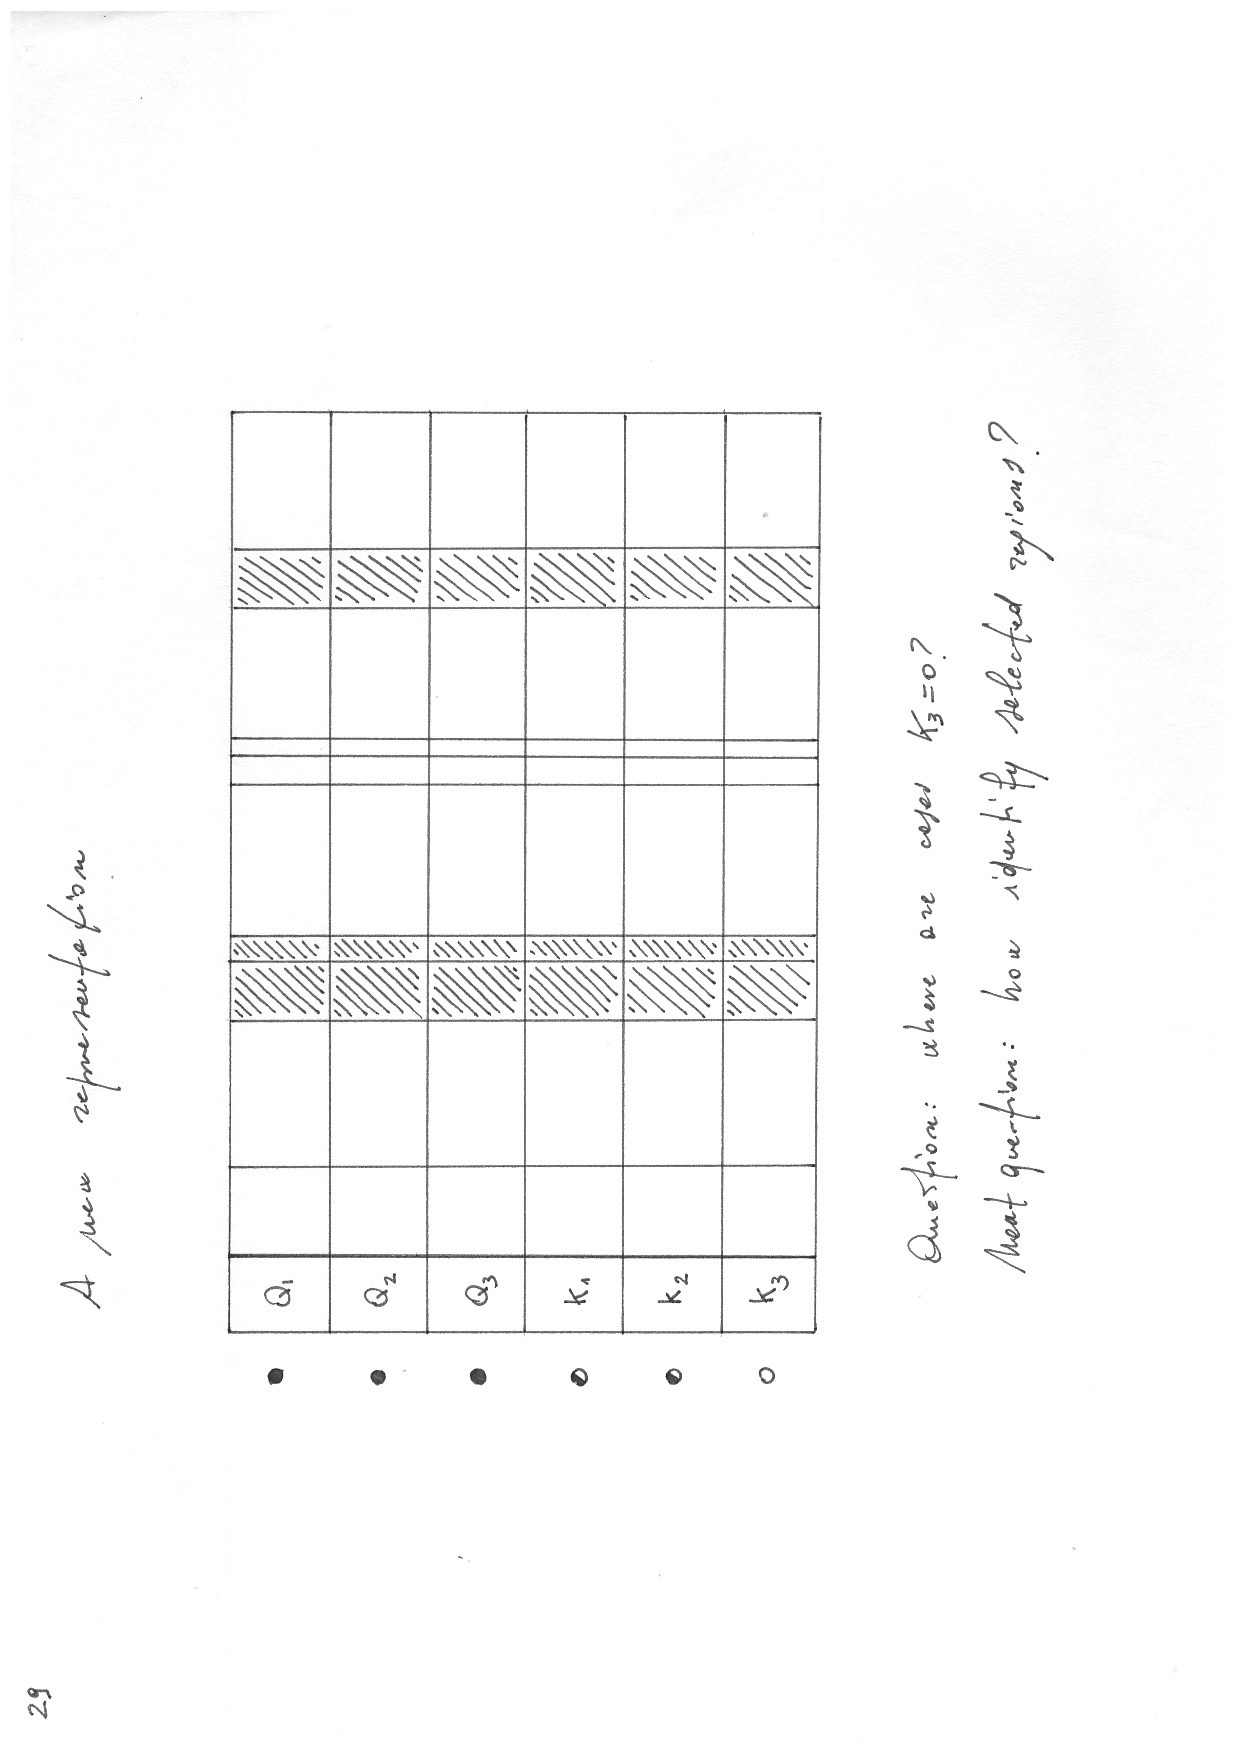 29
A new representation
Q1
Q2
Q3
K1
K2
K3
Question: where are cases K3=0?
Next question: how identify selected regions?